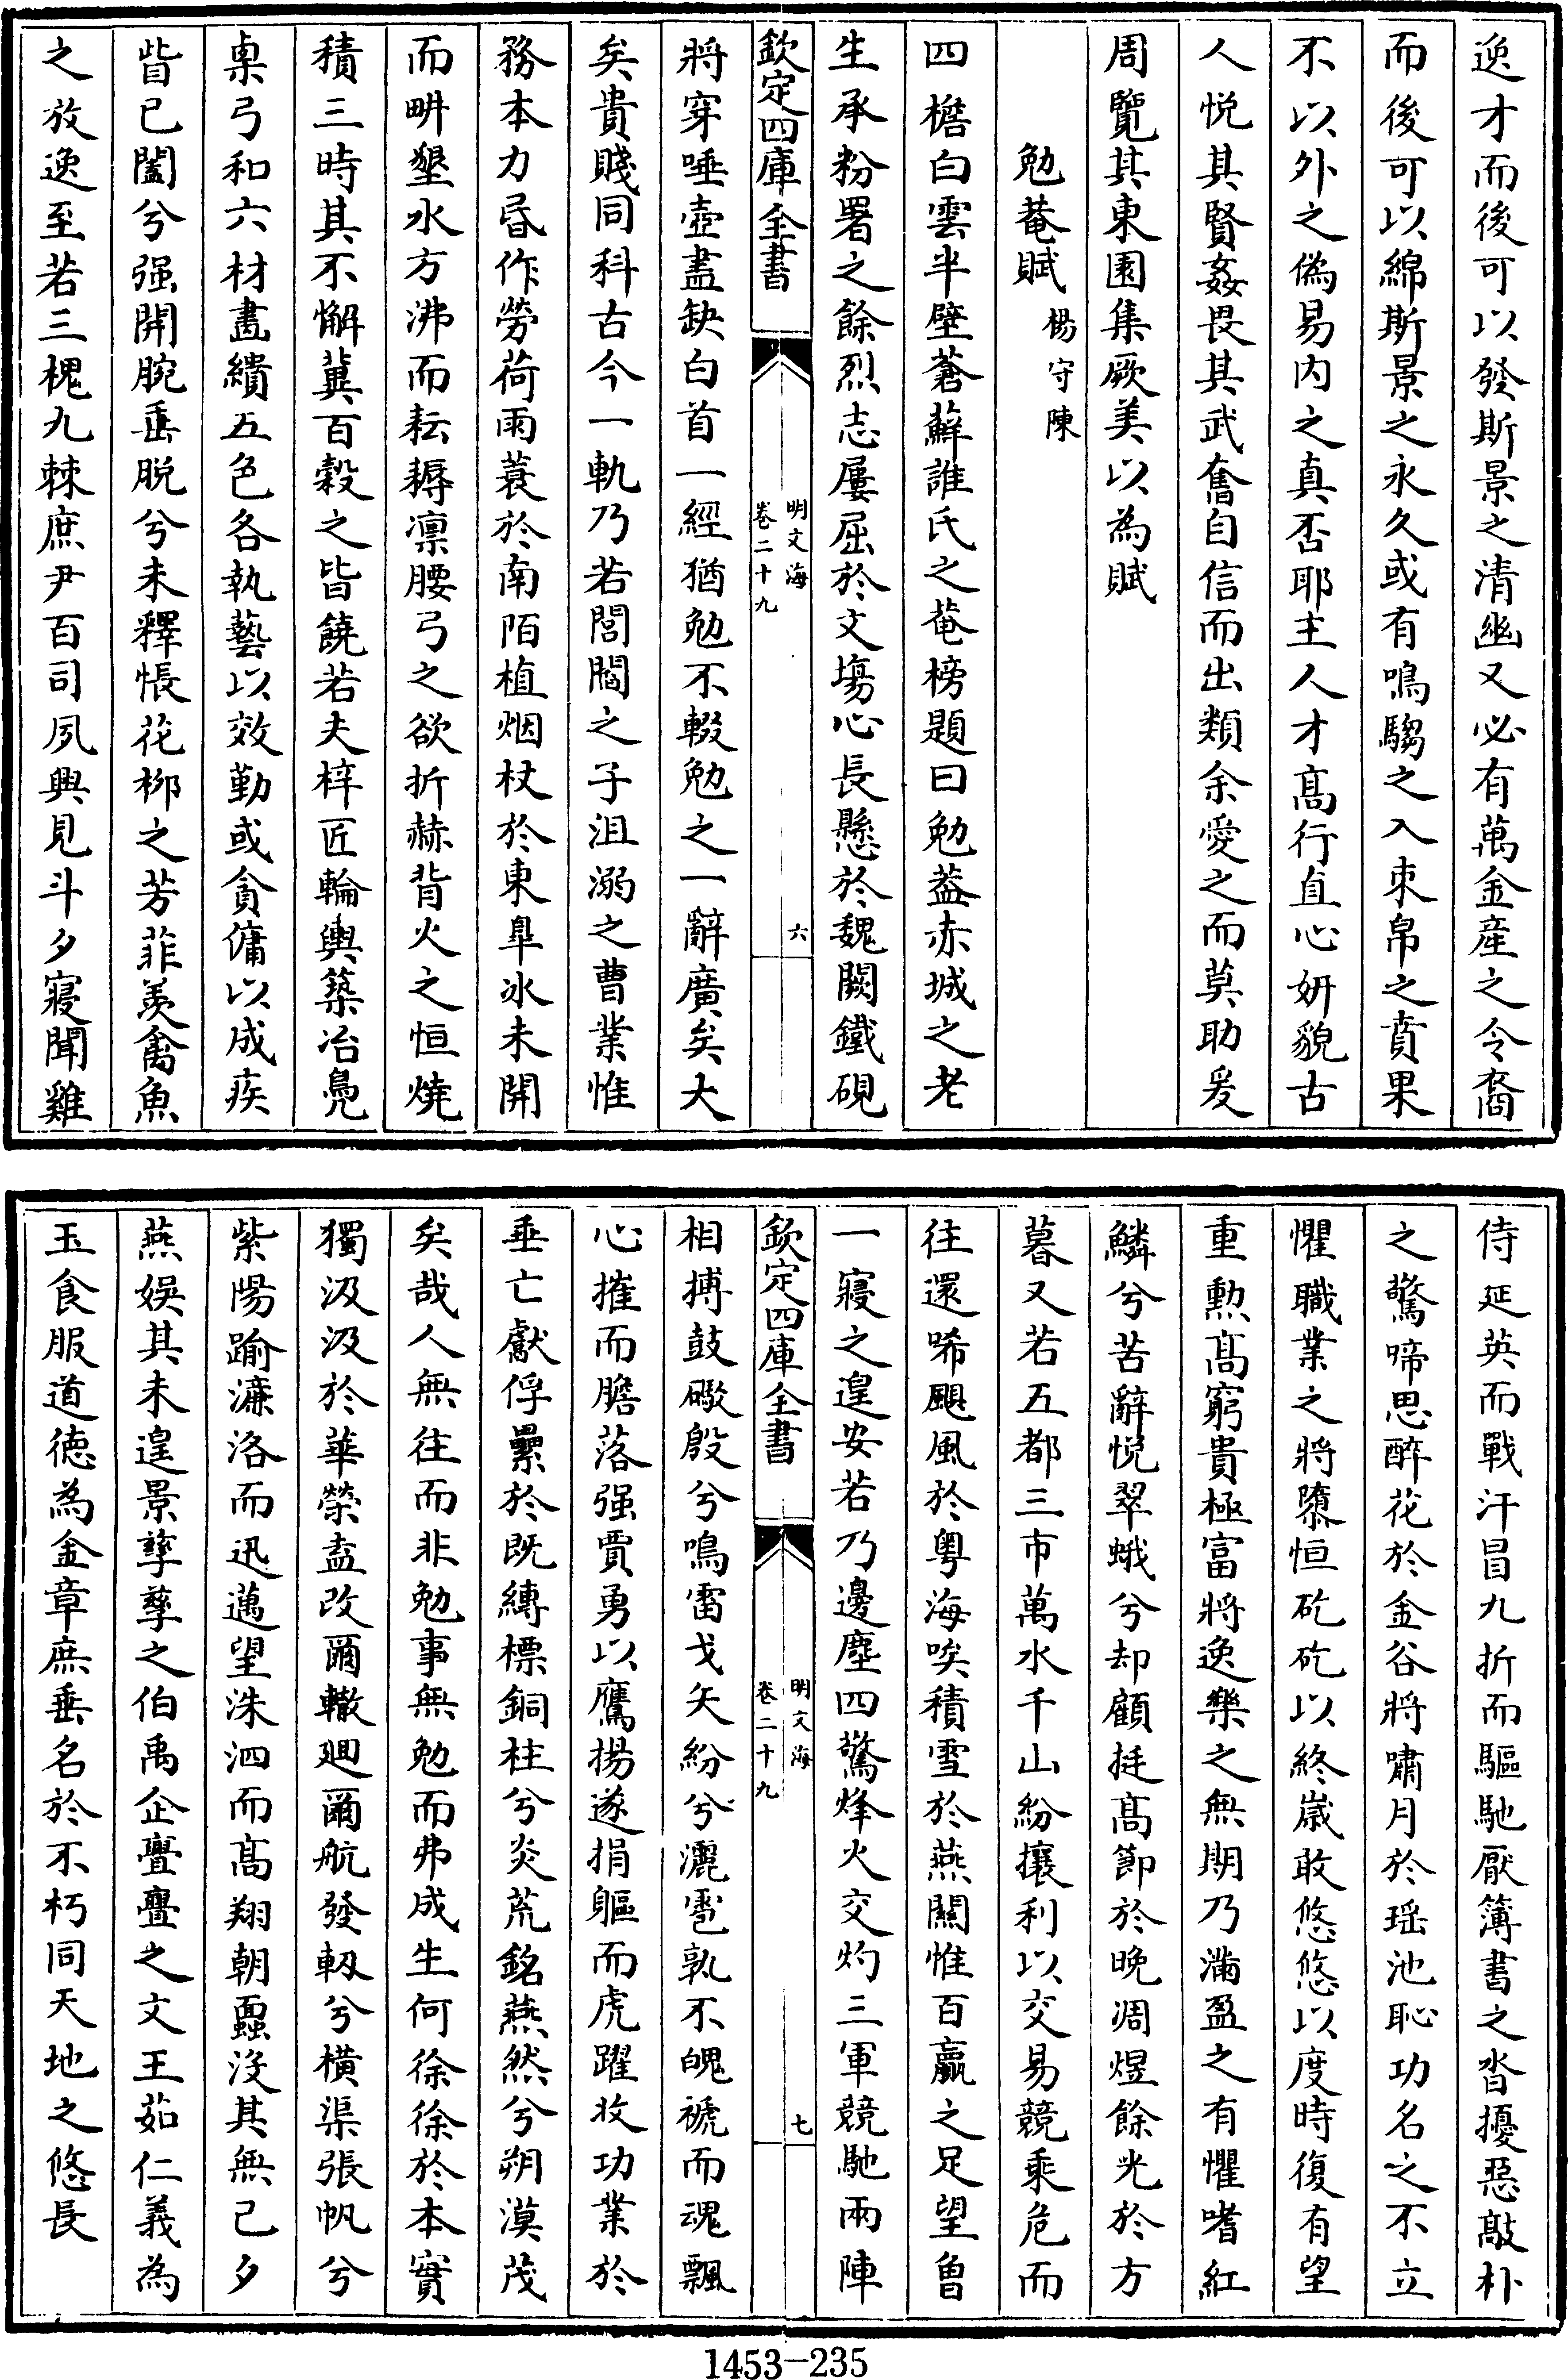 逸才而後可以發斯景之清幽又必有萬金産之令裔
而後可以綿斯景之永久或有鳴騶之入束帛之賁果
不以外之偽易内之真否耶主人才髙行直心妍貌古
人悦其賢姦畏其武奮自信而出類余愛之而莫助爰
周覽其東園集厥美以為賦
勉菴賦 楊守陳
四檐白雲半壁蒼蘚誰氏之菴榜題曰勉葢赤城之老
生承粉署之餘烈志屢屈於文塲心長懸於魏闕鐵硯
欽定四庫全書 明文海 卷二十九 六
將穿唾壺盡缺白首一經猶勉不輟勉之一辭廣矣大
矣貴賤同科古今一軌乃若閭閻之子沮溺之曹業惟
務本力昬作勞荷雨蓑於南陌植烟杖於東臯冰未開
而畊墾水方沸而耘耨凛腰弓之欲折赫背火之恒燒
積三時其不懈冀百穀之皆饒若夫梓匠輪輿築冶鳬
㮚弓和六材畫繢五色各執藝以效勤或貪傭以成疾
眥已闔兮强開腕垂脱兮未釋悵花栁之芳菲羨禽魚
之放逸至若三槐九棘庶尹百司夙興見斗夕寢聞雞
侍延英而戰汗冒九折而驅馳厭簿書之沓擾惡敲朴
之驚啼思醉花於金谷將嘯月於瑶池恥功名之不立
懼職業之將隳恒矻矻以終嵗敢悠悠以度時復有望
重勲髙窮貴極富將逸樂之無期乃滿盈之有懼嗜紅
鱗兮苦辭悦翠蛾兮却顧挺髙節於晩凋煜餘光於方
暮又若五都三市萬水千山紛攘利以交易競乘危而
往還唏颶風於粤海唉積雪於燕關惟百贏之足望曾
一寢之遑安若乃邊塵四驚烽火交灼三軍競馳兩陣
欽定四庫全書 明文海 卷二十九 七
相搏鼓礮殷兮鳴雷戈矢紛兮灑雹孰不魄褫而魂飄
心摧而膽落强賈勇以鷹揚遂捐軀而虎躍收功業於
垂亡獻俘纍於既縛標銅柱兮炎荒銘燕然兮朔漠茂
矣哉人無往而非勉事無勉而弗成生何徐徐於本實
獨汲汲於華榮盍改爾轍廻爾航發軔兮横渠張帆兮
紫陽踰濂洛而迅邁望洙泗而髙翔朝蝨没其無已夕
燕娱其未遑景孳孳之伯禹企亹亹之文王茹仁義為
玉食服道徳為金章庶垂名於不朽同天地之悠長
1453-235